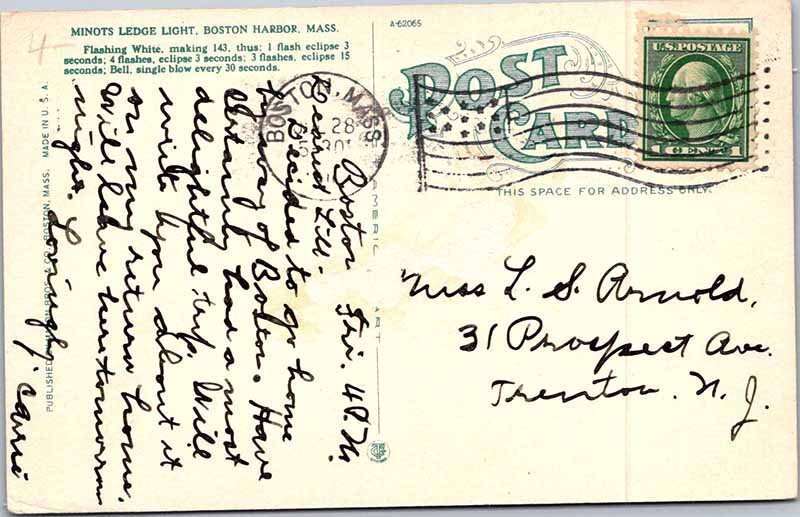 4-
MINOTS LEDGE LIGHT, BOSTON HARBOR, MASS.
Flashing White, making 143, thus: 1 flash eclipse 3
seconds; 4 flashes, eclipse 3 seconds; 3 flashes, eclipse 15
seconds; Bell, single blow every 30 seconds.
A-62065
POST
CARD
THIS SPACE FOR ADDRESS ONLY.
U.S. POSTAGE
1 CENT 1
BOSTON, MASS.
28
30
Boston Fri. 4 P.M.
Dear Lill-
Decided to go home
by way of Boston. Have
certainly had a most
delightful trip. Will
write you about it
on my return home.
Will leave here tomorrow
night. Lovingly, Carrie
Miss L. S. Arnold,
31 Prospect Ave.
Trenton. N. J.
PUBLISHED BOSTON, MASS. MADE IN U. S. A.
AMERIC ART